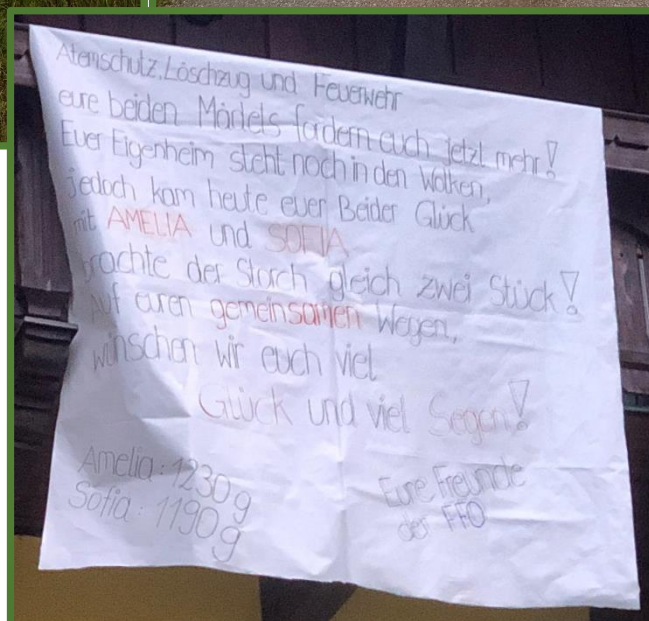 Atemschutz, Löschzug und Feuerwehr
eure beiden Mädels fordern euch jetzt mehr!
Euer Eigenheim steht noch in den Wolken,
jedoch kam heute euer Beider Glück
mit AMELIA und SOFIA
brachte der Storch gleich zwei Stück!
Auf euren gemeinsamen Wegen,
wünschen wir euch viel
Glück und viel Segen!
Amelia: 1230g
Sofia: 1190g
Eure Freunde
der FFO